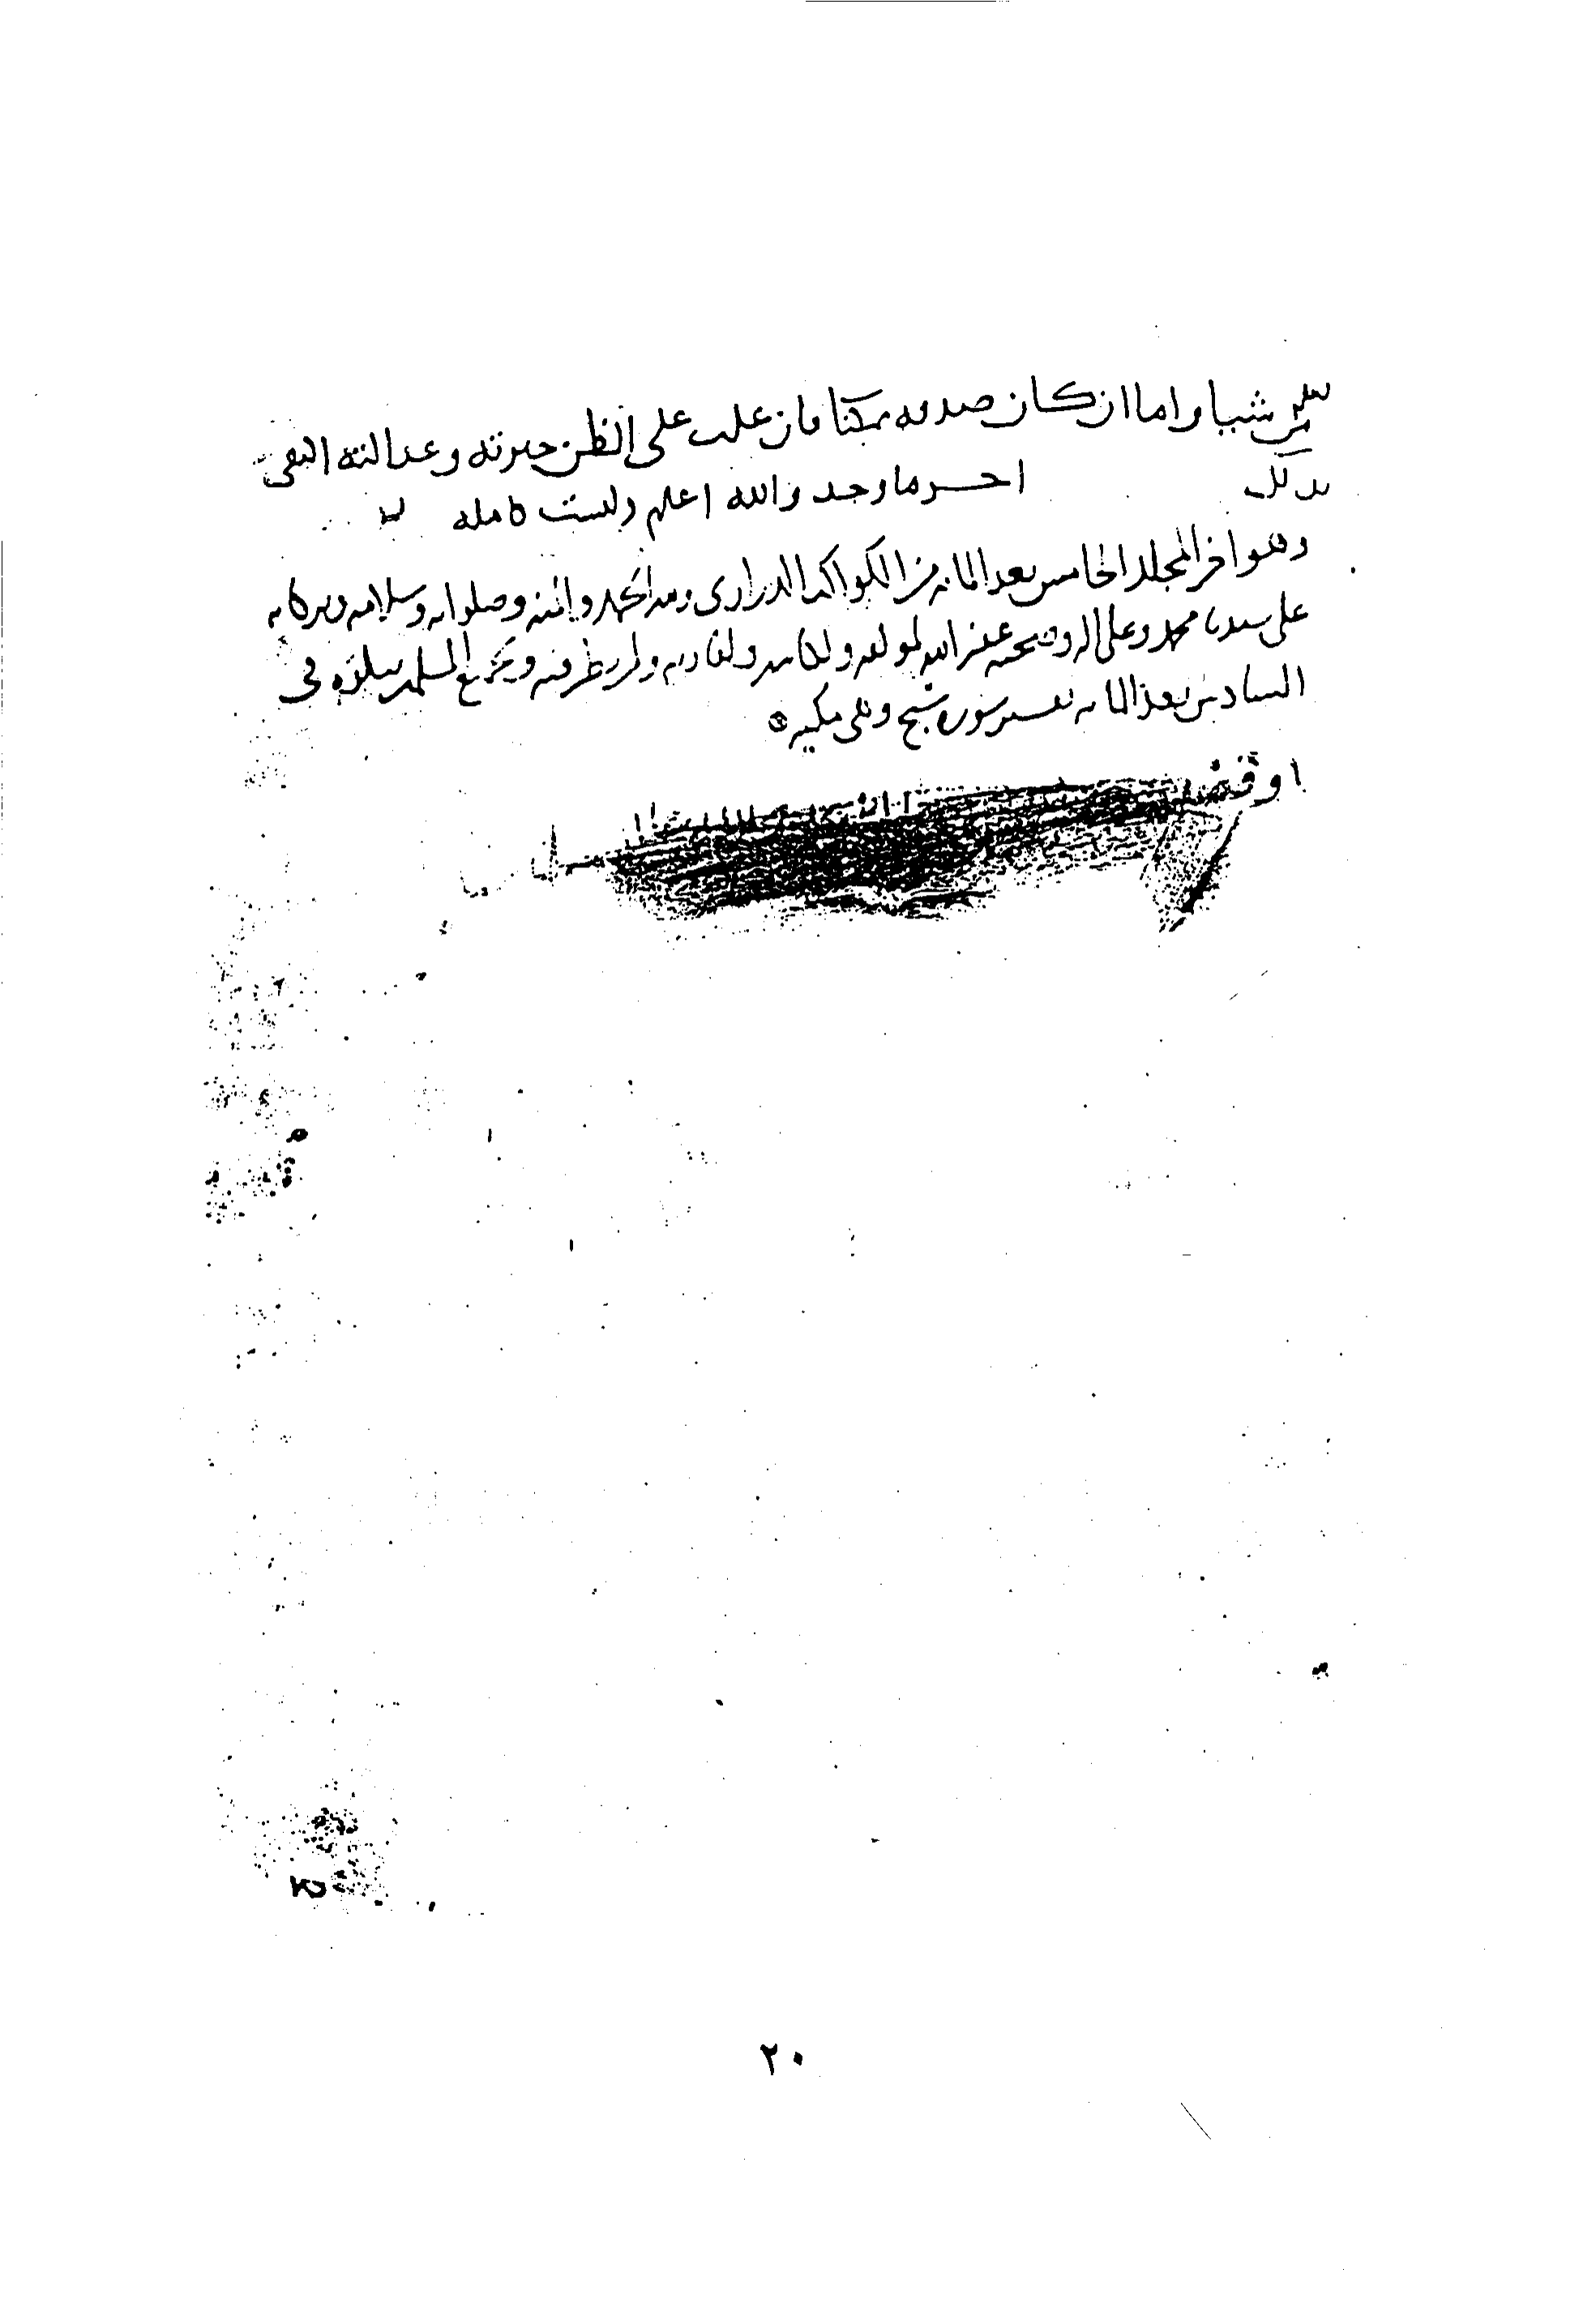 شيا واما ان كان صدقه ممكنا فان غلب على الظن خيرته وعدالته اكتفى
بذلك اخر ما وجد والله اعلم وليست كامله
وهو اخر المجلد الخامس بعد المايه من الكواكب الدراري ولله الحمد والمنه وصلواته وسلامه وبركاته
على سيدنا محمد وعلى اله وصحبه غفر الله لمولفه ولكاتبه ولقاريه ولمن نظر فيه ولجميع المسلمين يتلوه في
السادس بعد المايه تفسير سورة سبح وهي مكيه
اوقف
٢٠